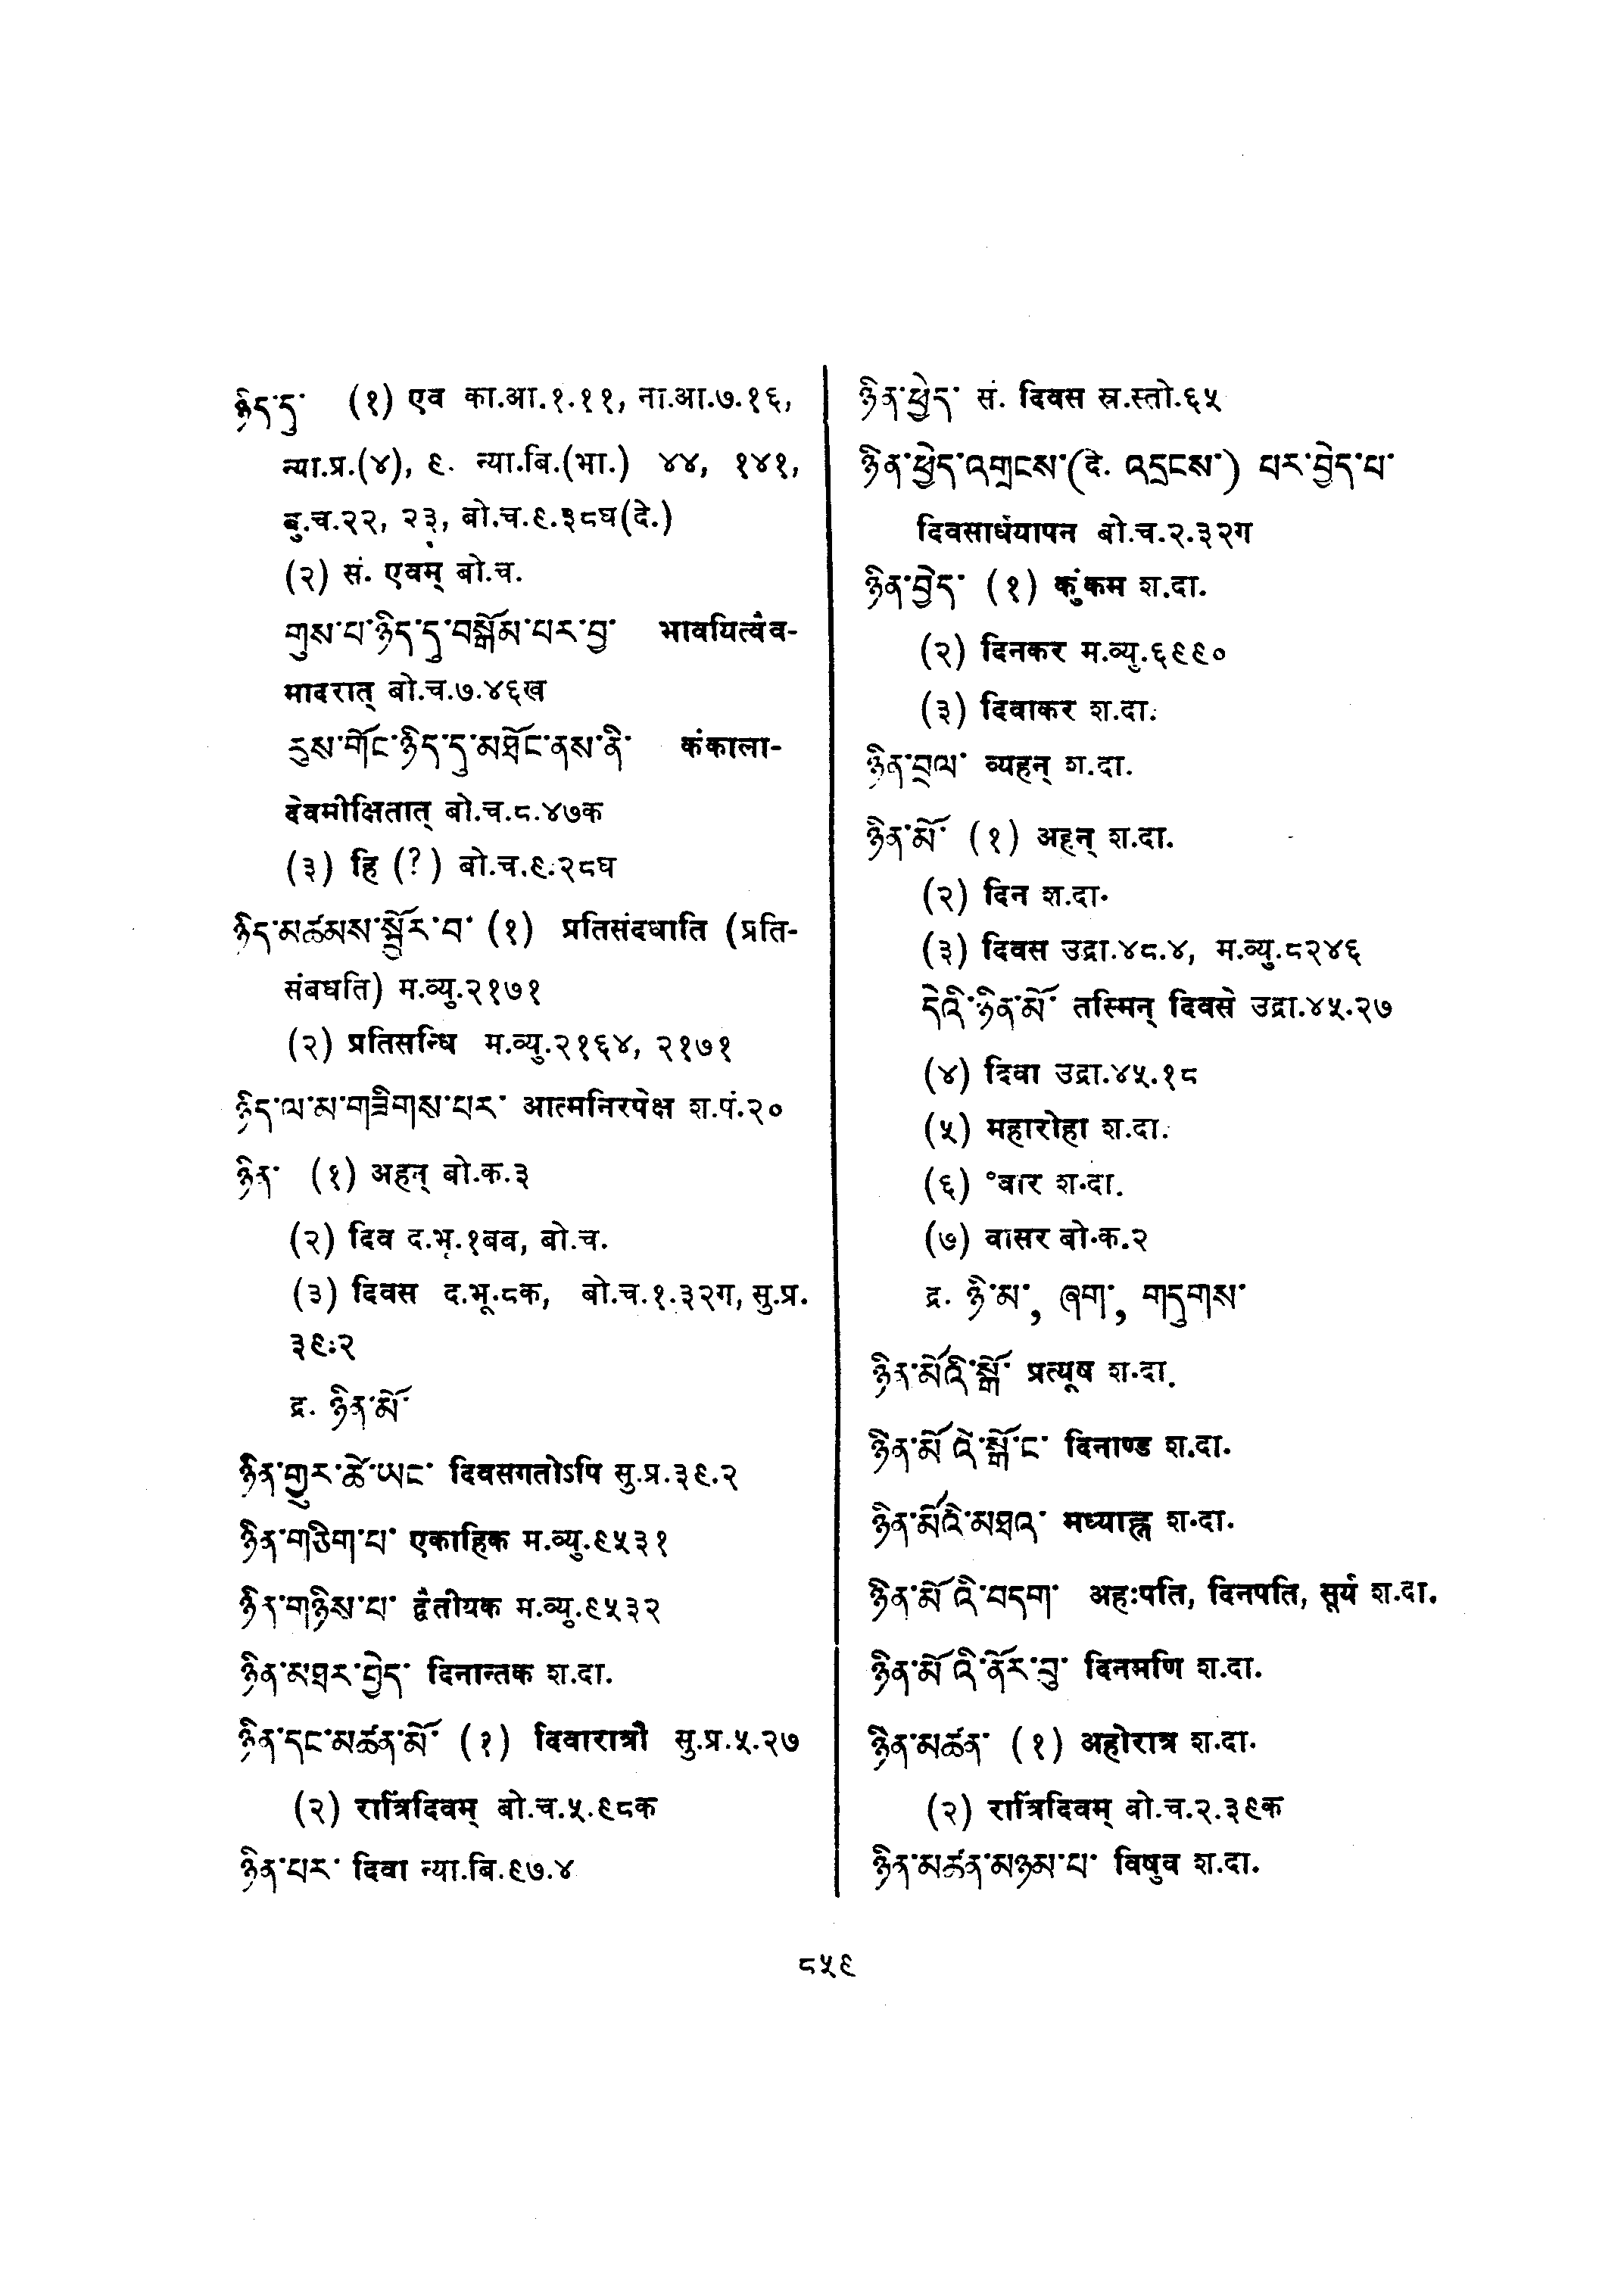 ཉིད་དུ་ (१) एव का.आ.१.११, ना.आ.७.१६,
न्या.प्र.(४), ९. न्या.बि.(भा.) ४४, १४१,
बु.च.२२, २३, बो.च.९.३८घ(दे.)
(२) सं. एवम् बो.च.
གུས་པ་ཉིད་དུ་བསྒོམ་པར་བྱ་ भावयित्वैव-
मादरात् बो.च.७.४६ख
རུས་གོང་ཉིད་དུ་མཐོང་ནས་ནི་ कंकाला-
देवमीक्षितात् बो.च.८.४७क
(३) हि (?) बो.च.९.२८घ
ཉིད་མཚམས་སྦྱོར་བ་ (१) प्रतिसंदधाति (प्रति-
संबधति) म.व्यु.२१७१
(२) प्रतिसन्धि म.व्यु.२१६४, २१७१
ཉིད་ལ་མ་གཟིགས་པར་ आत्मनिरपेक्ष श.पं.२०
ཉིན་ (१) अहन् बो.क.३
(२) दिव द.भू.१बब, बो.च.
(३) दिवस द.भू.८क, बो.च.१.३२ग, सु.प्र.
३९:२
द्र. ཉིན་མོ་
ཉིན་གྱུར་ཚེ་ཡང་ दिवसगतोऽपि सु.प्र.३९.२
ཉིན་གཅིག་པ་ एकाहिक म.व्यु.९५३१
ཉིན་གཉིས་པ་ द्वैतीयक म.व्यु.९५३२
ཉིན་མཐར་བྱེད་ दिनान्तक श.दा.
ཉིན་དང་མཚན་མོ་ (१) दिवारात्रौ सु.प्र.५.२७
(२) रात्रिंदिवम् बो.च.५.९८क
ཉིན་པར་ दिवा न्या.बि.९७.४
ཉིན་ཕྱེད་ सं. दिवस स्र.स्तो.६५
ཉིན་ཕྱེད་འགྲངས་(दे. འདྲངས་) པར་བྱེད་པ་
दिवसार्धयापन बो.च.२.३२ग
ཉིན་བྱེད་ (१) कुंकम श.दा.
(२) दिनकर म.व्यु.६९९०
(३) दिवाकर श.दा.
ཉིན་བྲལ་ व्यहन् श.दा.
ཉིན་མོ་ (१) अहन् श.दा.
(२) दिन श.दा.
(३) दिवस उद्रा.४८.४, म.व्यु.८२४६
དེའི་ཉིན་མོ་ तस्मिन् दिवसे उद्रा.४५.२७
(४) दिवा उद्रा.४५.१८
(५) महारोहा श.दा.
(६) °वार श.दा.
(७) वासर बो.क.२
द्र. ཉི་མ་, ཞག་, གདུགས་
ཉིན་མོའི་སྒོ་ प्रत्यूष श.दा.
ཉིན་མོ་འི་སྒོང་ दिनाण्ड श.दा.
ཉིན་མོའི་མཐའ་ मध्याह्न श.दा.
ཉིན་མོ་འི་བདག་ अहःपति, दिनपति, सूर्य श.दा.
ཉིན་མོ་འི་ནོར་བུ་ दिनमणि श.दा.
ཉིན་མཚན་ (१) अहोरात्र श.दा.
(२) रात्रिंदिवम् बो.च.२.३९क
ཉིན་མཚན་མཉམ་པ་ विषुव श.दा.
८५९